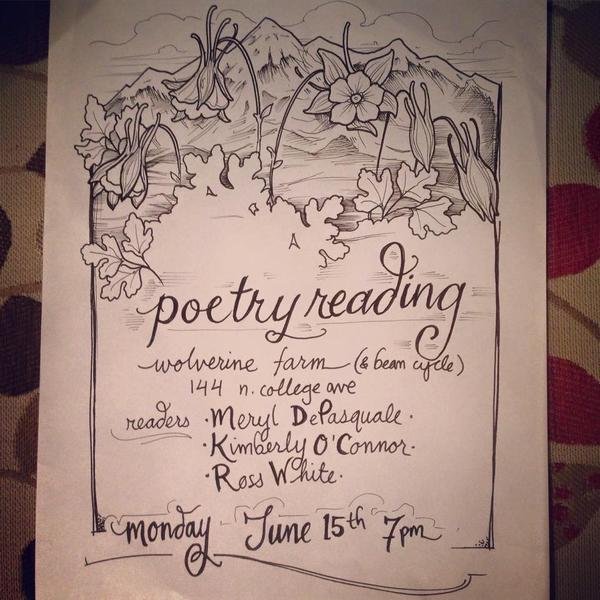 poetry reading
wolverine farm (& bean cycle)
144 n. college ave
readers · Meryl DePasquale ·
· Kimberly O'Connor ·
· Ross White ·
monday June 15th 7pm